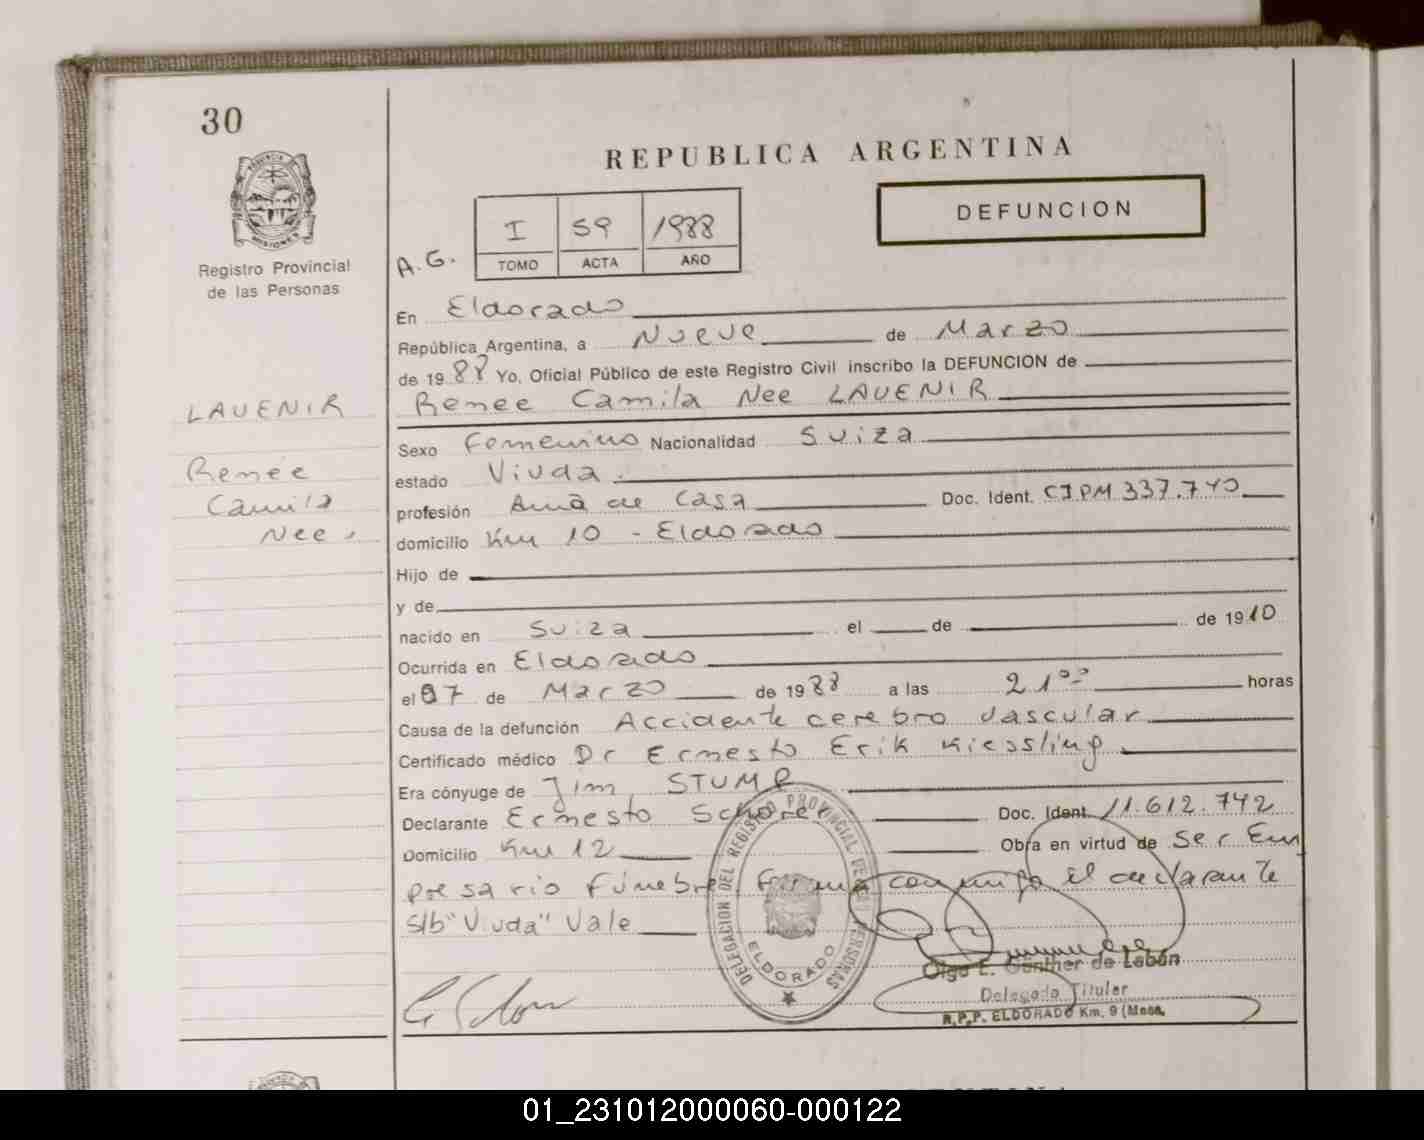 30
REPUBLICA ARGENTINA
DEFUNCION
MISIONES
Registro Provincial
de las Personas
A.G.
I 59 1988
TOMO ACTA AÑO
En Eldorado
República Argentina, a Nueve de Marzo
de 1988 Yo, Oficial Público de este Registro Civil inscribo la DEFUNCION de
LAVENIR
Renee Camila Nee LAVENIR
Sexo Femenino Nacionalidad Suiza
Renée
estado Viuda.
Camila
profesión Ama de Casa Doc. Ident. CIPM 337.740
Nee,
domicilio Km 10 - Eldorado
Hijo de
y de
nacido en Suiza el de de 1910
Ocurrida en Eldorado
el 07 de Marzo de 1988 a las 21ºº horas
Causa de la defunción Accidente cerebro vascular
Certificado médico Dr Ernesto Erik Kiessling
Era cónyuge de Jim STUMP
Declarante Ernesto Schorer Doc. Ident. 11.612.742
Domicilio Km 12 Obra en virtud de Ser Em
presario Fúnebre, Firma conmigo el declarante
S/b "Viuda" Vale
DELEGACION DEL REGISTRO PROVINCIAL DE LAS PERSONAS
ELDORADO
Olga E. Günther de Labán
Delegada Titular
R.P.P. ELDORADO Km. 9 (Mnes.
01_231012000060-000122